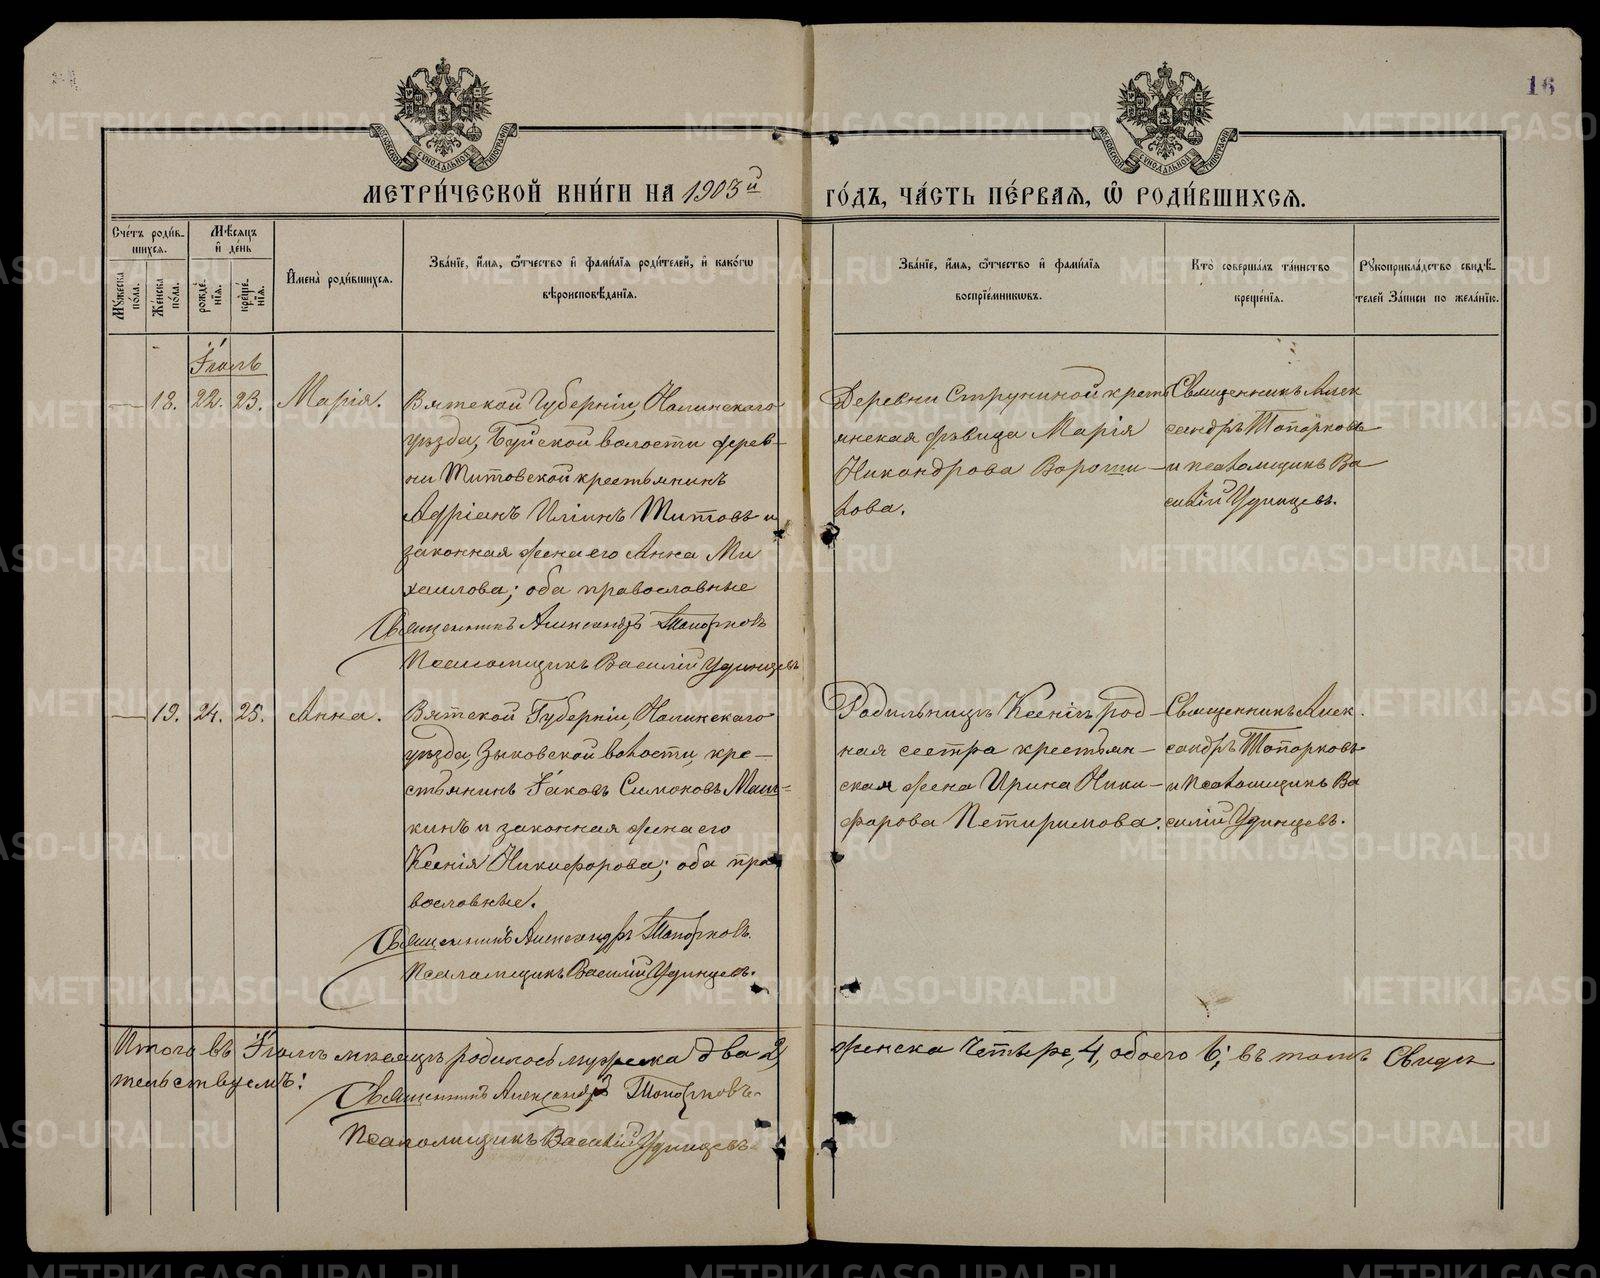 16
МЕТРИ́ЧЕСКОЙ КНИ́ГИ НА 1903й
ГО́ДЪ, ЧА́СТЬ ПЕ́РВАѦ, Ѡ҆ РОДИ́ВШИХСѦ.
Сче́тъ роди́в-
шихся.
Мꙋ́жеска по́ла.
Же́нска по́ла.
Мѣ́сяцъ и҆ де́нь
рожде́-нїя.
креще́-нїя.
И҆мена̀ роди́вшихся.
Зва́нїе, и҆́мя, ѻ҆́тчество и҆ фами́лїя роди́телей, и҆ како́гѡ
вѣроисповѣ́данїя.
Зва́нїе, и҆́мя, ѻ҆́тчество и҆ фами́лїя
воспрїе́мниковъ.
Кто̀ соверша́лъ та́инство
креще́нїя.
Рꙋкоприкла́дство свидѣ́-
телей за́писи по жела́нїю.
Іюль
18. 22. 23. Марія.
Вятской Губерніи, Нолинскаго
уѣзда, Буйской волости дерев-
ни Титовской крестьянинъ
Адріанъ Иліинъ Титовъ и
законная жена его Анна Ми
хаилова; оба православные
Священникъ Александръ Топорковъ
Псаломщикъ Василій Удинцевъ
Деревни Струниной кресть
янская дѣвица Марія
Никандрова Вороши-
лова.
Священникъ Алек
сандръ Топорковъ
и псаломщикъ Ва
силій Удинцевъ.
19. 24. 25. Анна.
Вятской Губерніи, Нолинскаго
уѣзда, Зыковской волости, кре-
стьянинъ Іаковъ Симоновъ Маш-
кинъ и законная жена его
Ксенія Никифорова; оба пра
вославные.
Священникъ Александръ Топорковъ.
Псаломщикъ Василій Удинцевъ.
Родильницѣ Ксеніи род-
ная сестра крестьян-
ская жена Ирина Ники-
форова Петиримова.
Священникъ Алек.
сандръ Топорковъ
и Псаломщикъ Ва
силій Удинцевъ.
Итого въ Іюлѣ мѣсяцѣ родилось мужеска два 2,
женска четыре, 4, обоего 6; въ томъ Свидѣ
тельствуемъ:
Священникъ Александръ Топорковъ.
Псаломщикъ Василій Удинцевъ